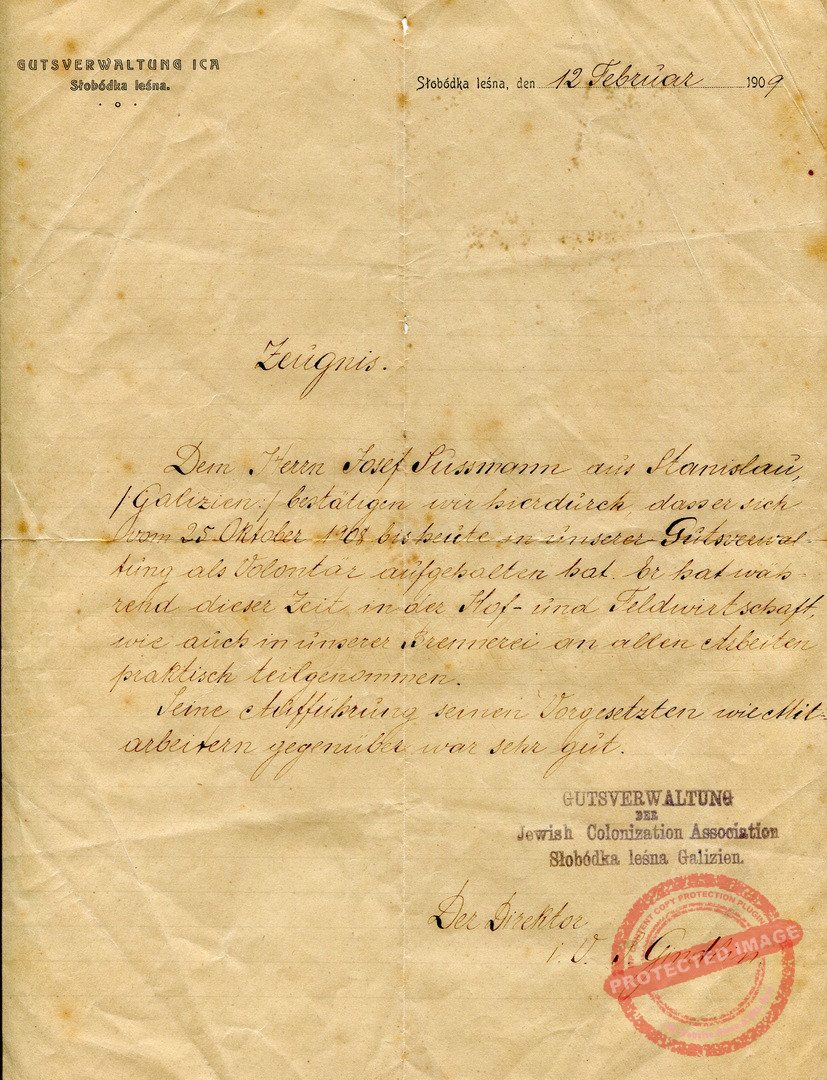 GUTSVERWALTUNG ICA
Słobódka leśna.
Słobódka leśna, den 12 Februar 1909
Zeugnis.
Dem Herrn Josef Sussmann aus Stanislau,
/Galizien:/ bestätigen wir hierdurch, dass er sich
vom 25 Oktober 1908 bis heute in unserer Gutsverwal-
tung als Volontär aufgehalten hat. Er hat wäh-
rend dieser Zeit in der Hof- und Feldwirtschaft,
wie auch in unserer Brennerei an allen Arbeiten
praktisch teilgenommen.
Seine Aufführung seinen Vorgesetzten wie Mit-
arbeitern gegenüber war sehr gut.
GUTSVERWALTUNG
DER
Jewish Colonization Association
Słobódka leśna Galizien.
Der Direktor
i. V.
CONTENT COPY PROTECTION PLUGIN
PROTECTED IMAGE